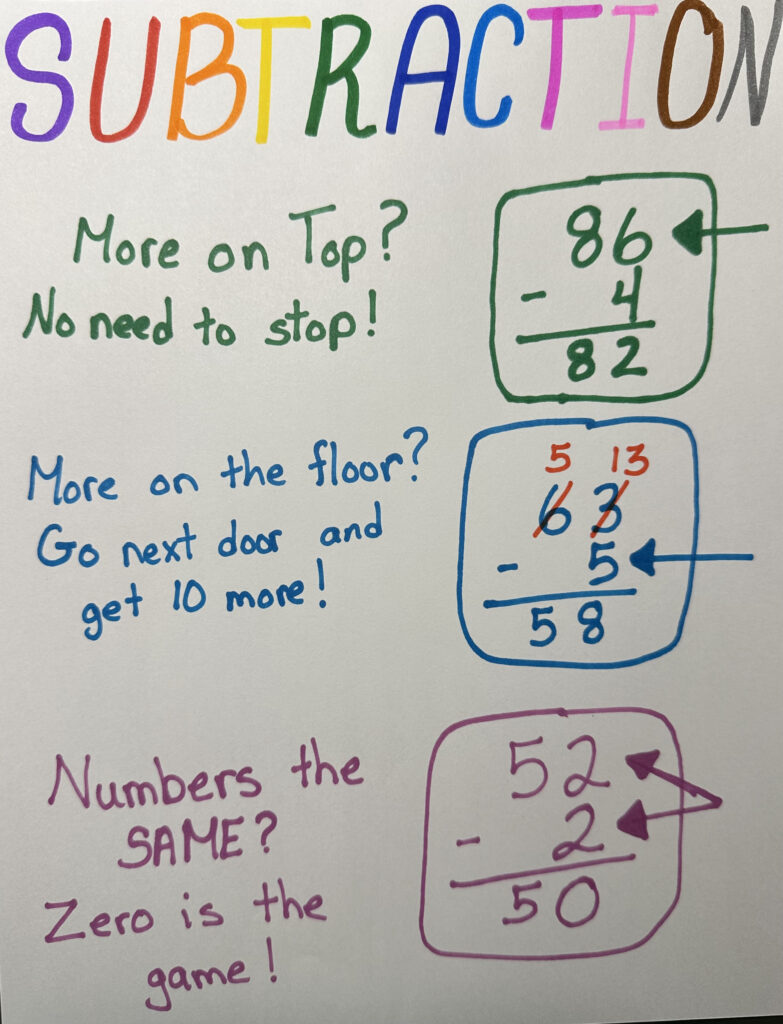 SUBTRACTION
More on Top?
No need to stop!
86
- 4
82
More on the floor?
Go next door and
get 10 more!
5 13
63
- 5
58
Numbers the
SAME?
Zero is the
game!
52
- 2
50